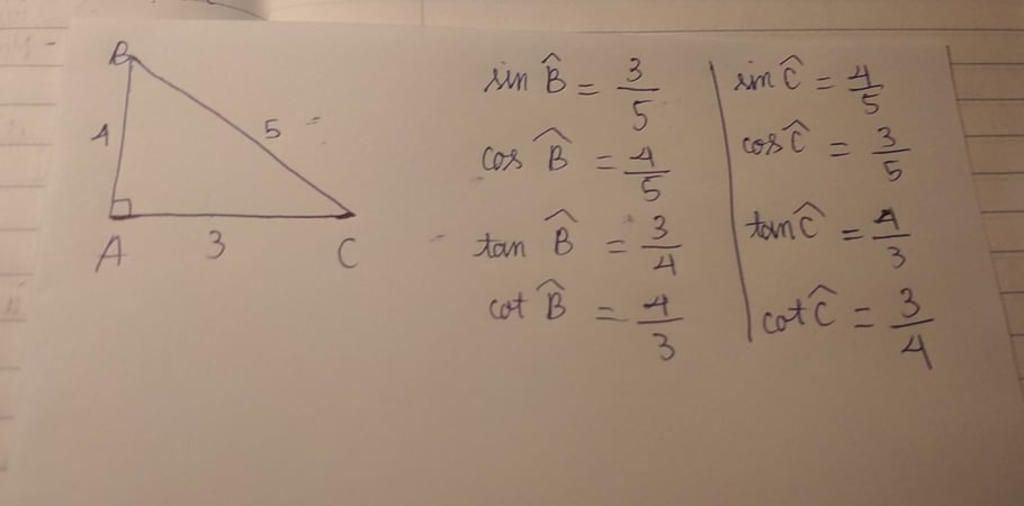 B
4
5
A
3
C
sin B̂ = 3/5
cos B̂ = 4/5
tan B̂ = 3/4
cot B̂ = 4/3
sin Ĉ = 4/5
cos Ĉ = 3/5
tan Ĉ = 4/3
cot Ĉ = 3/4